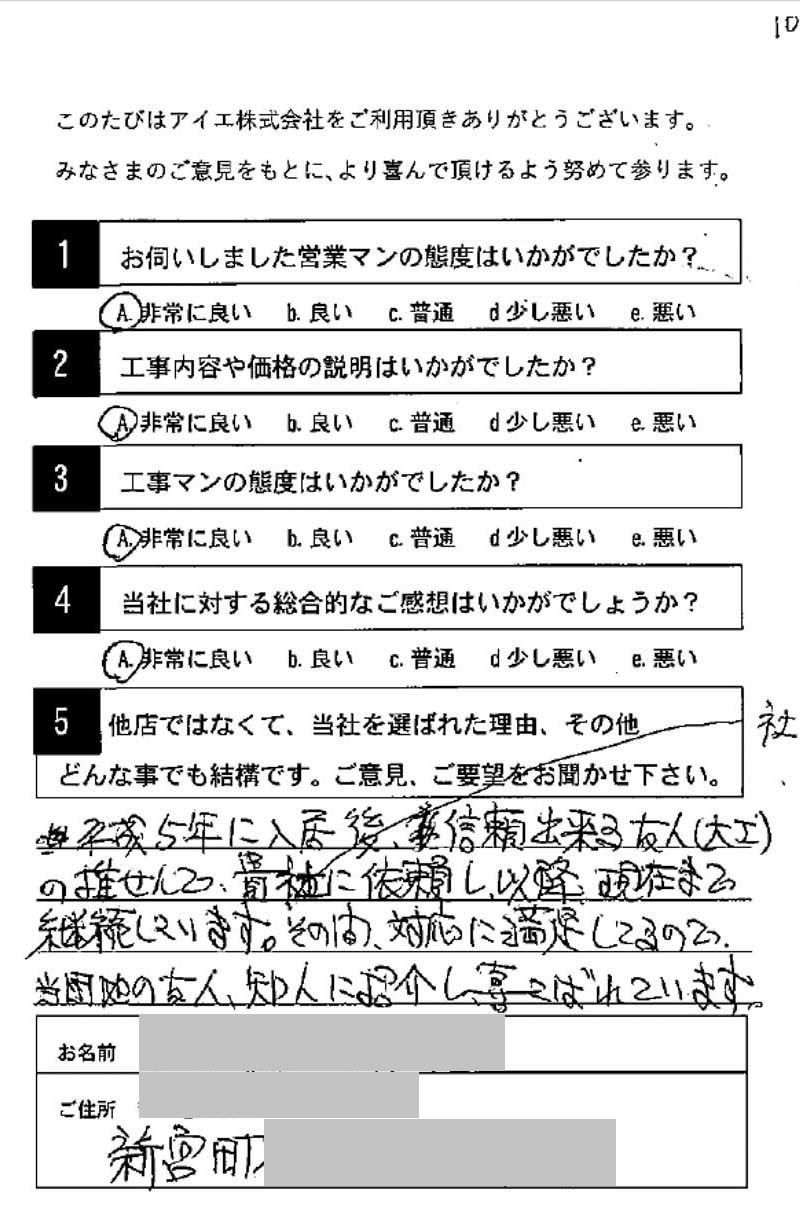 10
このたびはアイエ株式会社をご利用頂きありがとうございます。
みなさまのご意見をもとに、より喜んで頂けるよう努めて参ります。
1 お伺いしました営業マンの態度はいかがでしたか？
A.非常に良い b.良い c.普通 d少し悪い e.悪い
2 工事内容や価格の説明はいかがでしたか？
A.非常に良い b.良い c.普通 d少し悪い e.悪い
3 工事マンの態度はいかがでしたか？
A.非常に良い b.良い c.普通 d少し悪い e.悪い
4 当社に対する総合的なご感想はいかがでしょうか？
A.非常に良い b.良い c.普通 d少し悪い e.悪い
5 他店ではなくて、当社を選ばれた理由、その他
社
どんな事でも結構です。ご意見、ご要望をお聞かせ下さい。
平成5年に入居後、信頼出来る友人(大工)
の推せんで、貴社に依頼し、以降、現在まで
継続しています。その間、対応に満足してるので、
当団地の友人、知人に紹介し、喜ばれています。
お名前
ご住所
新宮町